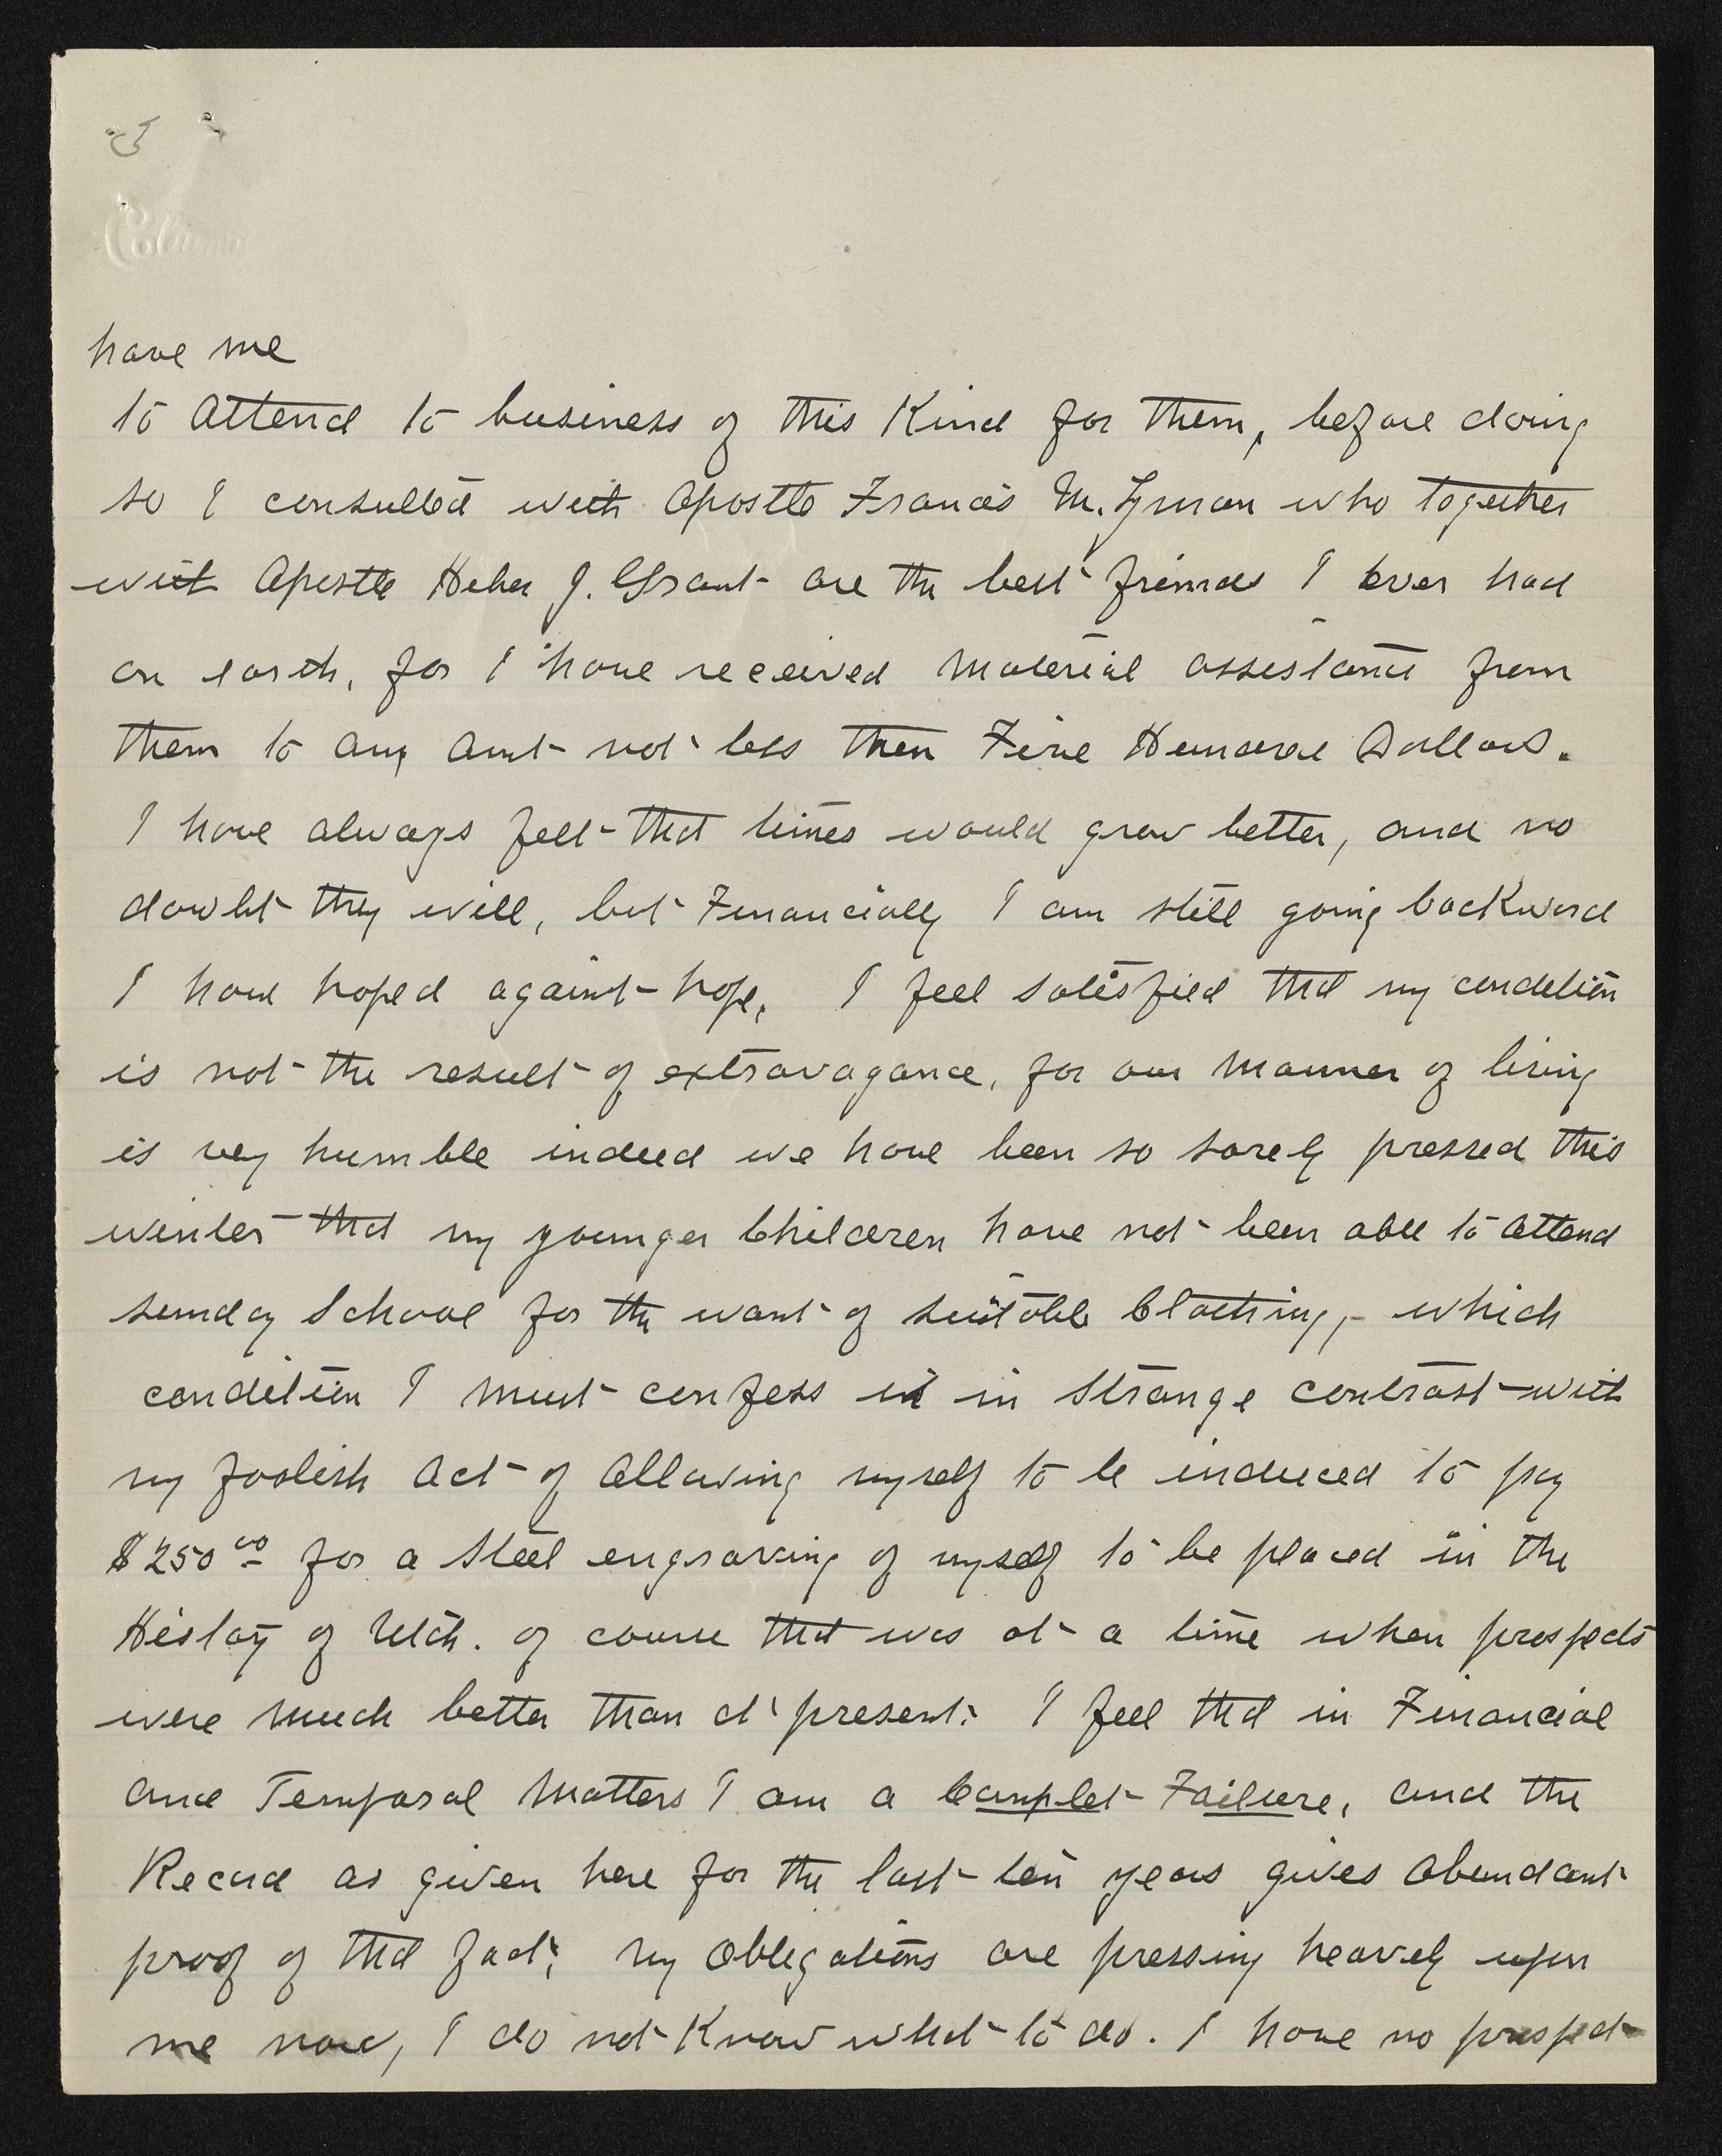 5
have me
to Attend to business of this Kind for them, before doing
so I consulted with Apostle Francis M. Lyman who together
with Apostle Heber J. Grant are the best friends I ever had
on earth, for I have received Material assistance from
them to any Amt not less then Five Hundred Dollars.
I have always felt that times would grow better, and no
doubt they will, but Financially I am still going backward
I have hoped against hope, I feel satisfied that my condition
is not the result of extravagance, for our Manner of living
is very humble indeed we have been so sorely pressed this
winter that my younger Children have not been able to Attend
Sunday School for the want of suitable Clothing, which
condition I must confess is in strange contrast with
my foolish Act of Allowing myself to be induced to pay
$250.00 for a Steel engraving of myself to be placed in the
History of Utah. of course that was at a time when prospects
were much better than at present. I feel that in Financial
and Temporal Matters I am a Complet Failure, and the
Record as given here for the last ten years gives Abundant
proof of that fact; my Obligations are pressing heavely upon
me now, I do not Know what to do. I have no prospect